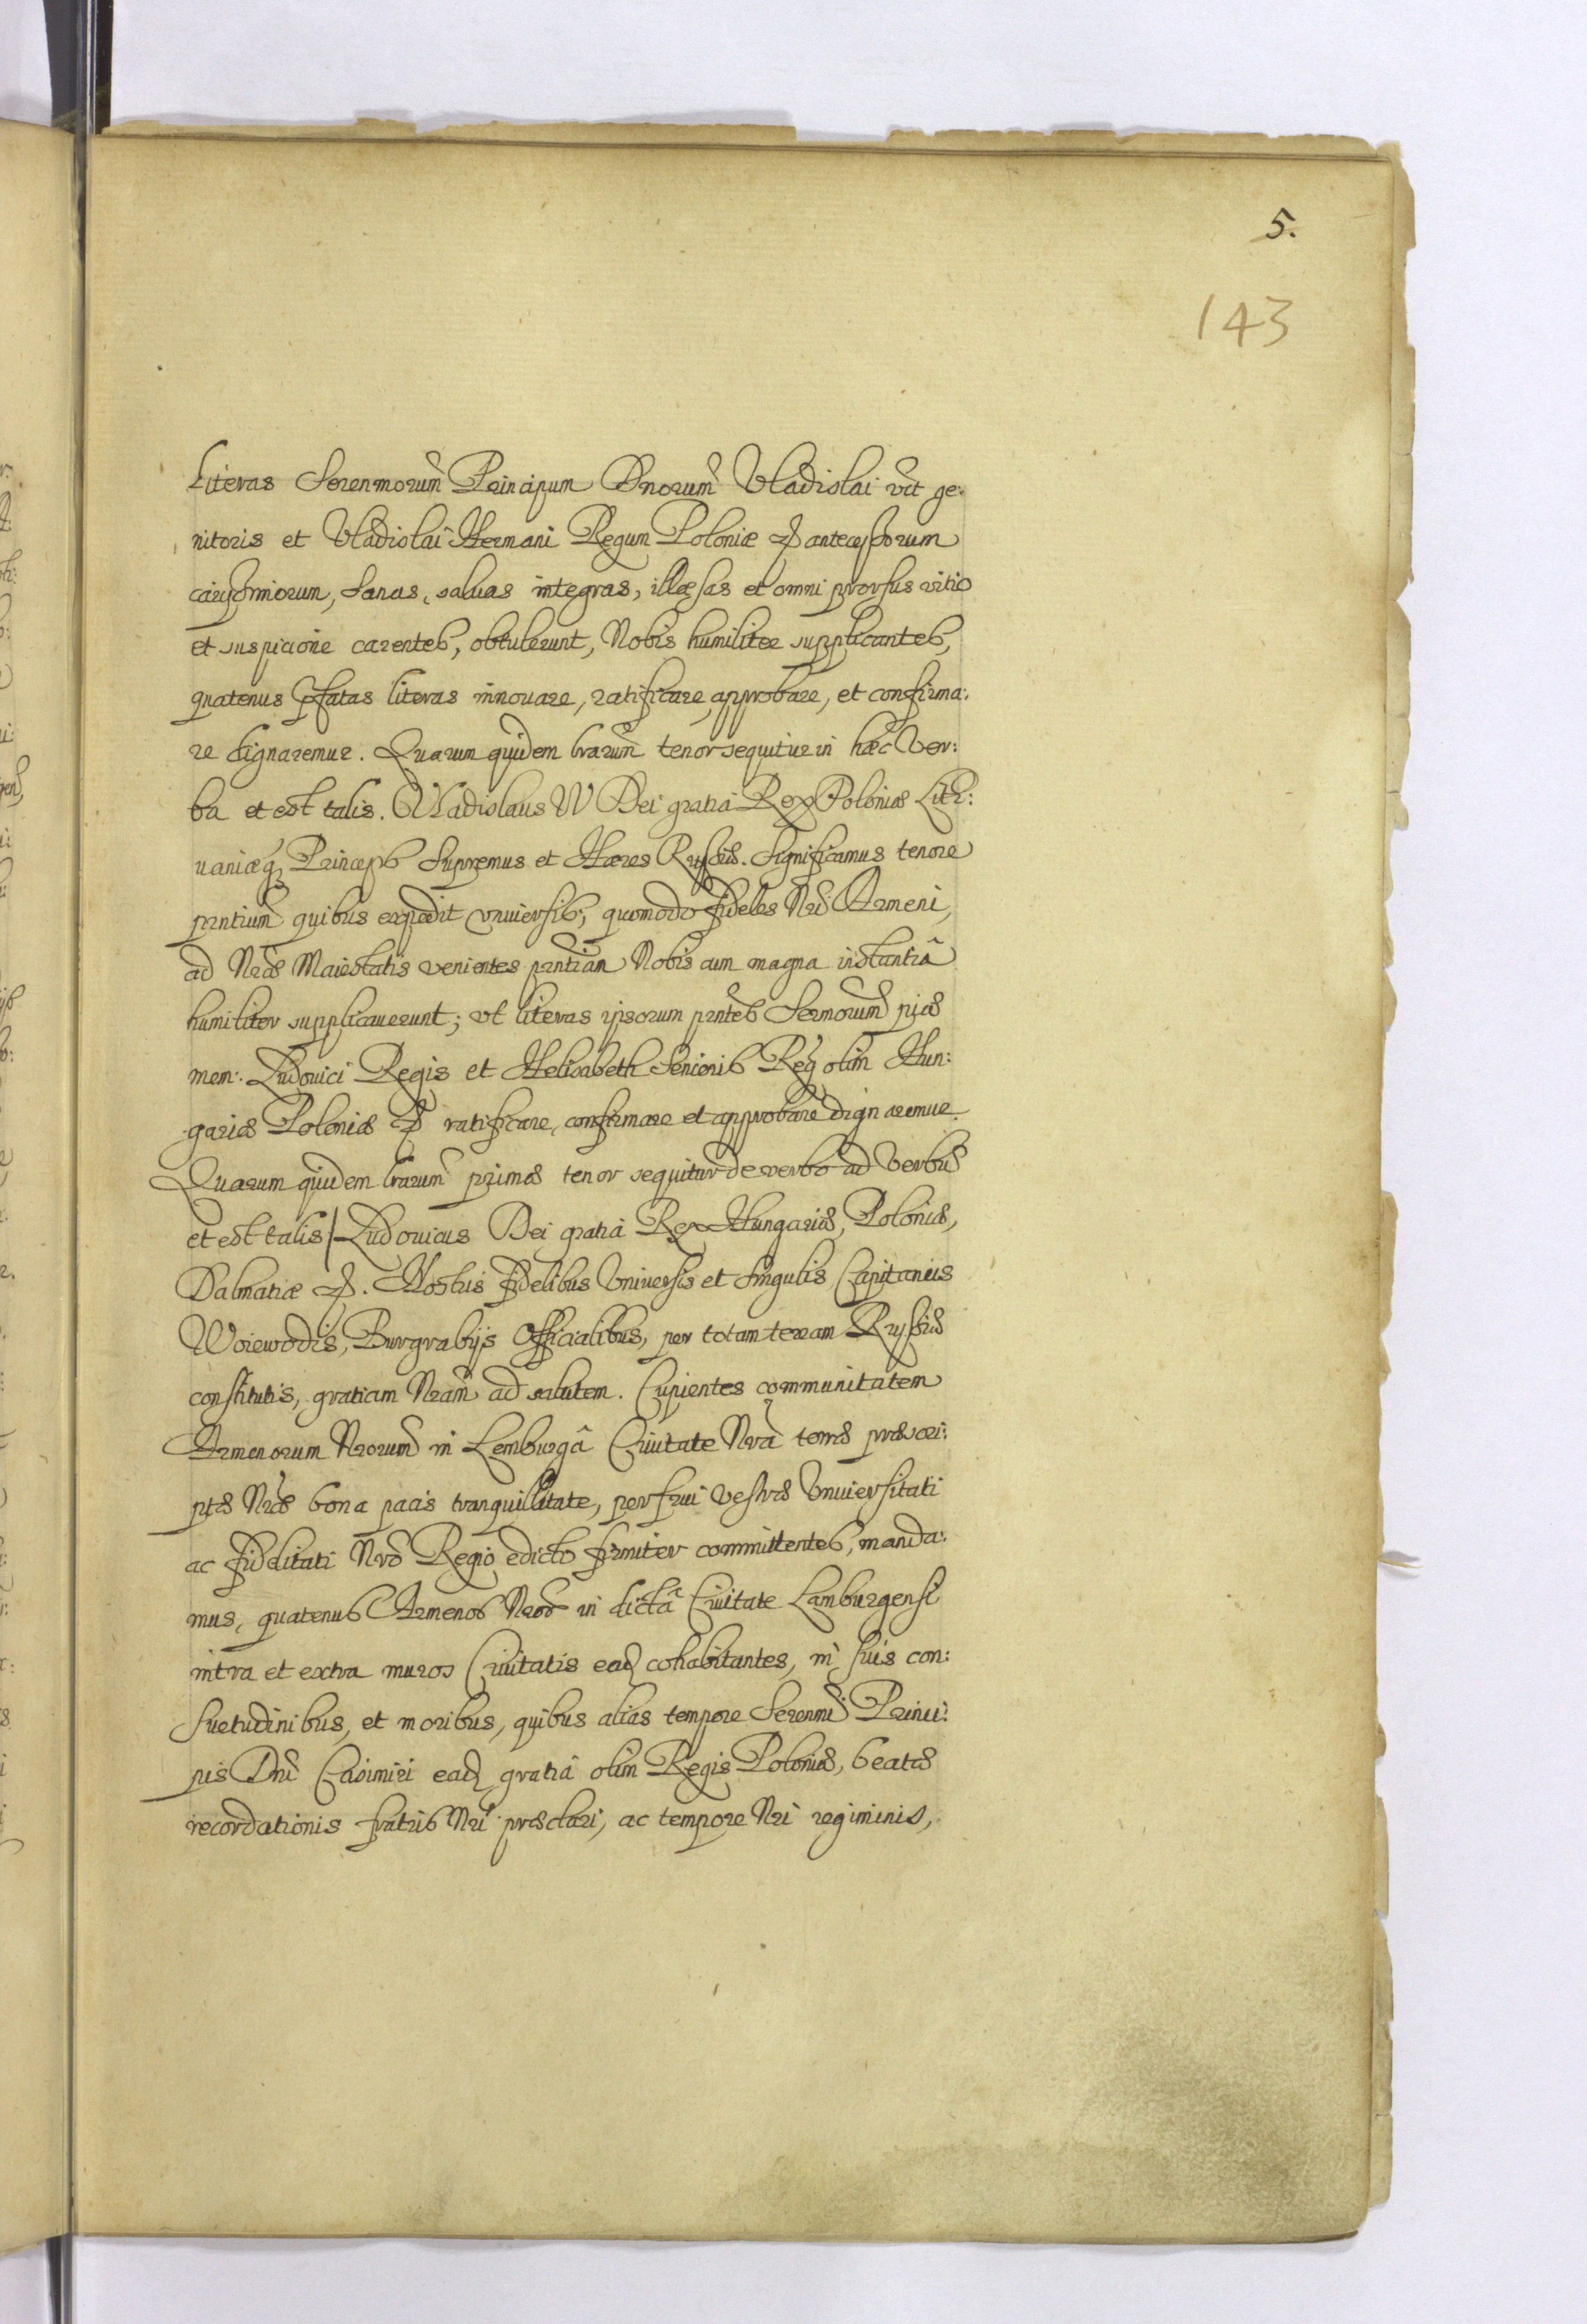 5.
143
Literas Serenmorum̃ Principum Dnorum̃ Vladislai vɽt ge:
nitoris et Vladislai Hermani Regum Poloniæ & antecessorum
carissimorum, sanas, saluas integras, illæsas et omni prorsus vitio
et suspicione carentes, obtulerunt, Nobis humiliter supplicantes,
quatenus pfatas literas innouare, ratificare approbare, et confirma:
re dignaremur. Quarum quidem lrarum̃ tenor sequitur in hæc ver:
ba et est talis. Vladislaus W Dei gratiâ Rex Poloniæ Lith:
uaniæq, Princeps Supremus et Hæres Russiæ. Significamus tenore
prntium̃ quibus expedit vniuersis; quomodo fideles Nri Armeni,
ad Nræ Maiestatis venientes prntiam Nobis cum magna instantiâ
humiliter supplicauerunt; vt literas ipsorum prntes Sermorum̃ piæ
mem: Ludouici Regis et Helisabeth Senioris Reg olim Hun:
gariæ Poloniæ & ratificare, confirmare et approbare dignaremur.
Quarum quidem lrarum̃ primæ tenor sequitur de verbo ad verbũ
et est talis / Ludouicus Dei gratiâ Rex Hungariæ, Poloniæ,
Dalmatiæ &. Nostris fidelibus Vniuersis et singulis Capitaneis
Woiewodis, Burgrabijs Officialibus, per totam terram Russiæ
constitutis, gratiam Nram̃ ad salutem. Cupientes communitatem
Armenorum Nrorum̃ in Lemburgâ Ciuitate Nrâ terræ præscri:
ptæ Nræ bona pacis tranquillitate, perfrui vestræ Vniuersitati
ac fidelitati Nrõ Regio edicto firmiter committentes, manda:
mus, quatenus Armenos Nros in dictâ Ciuitate Lamburgensi
intra et extra muros Ciuitatis ead cohabitantes, in suis con:
suetudinibus, et moribus, quibus alias tempore Serenmi Princi:
pis Dni Casimiri ead gratiâ olim Regis Poloniæ, beatæ
recordationis fratris Nri præclari, ac tempore Nri regiminis,